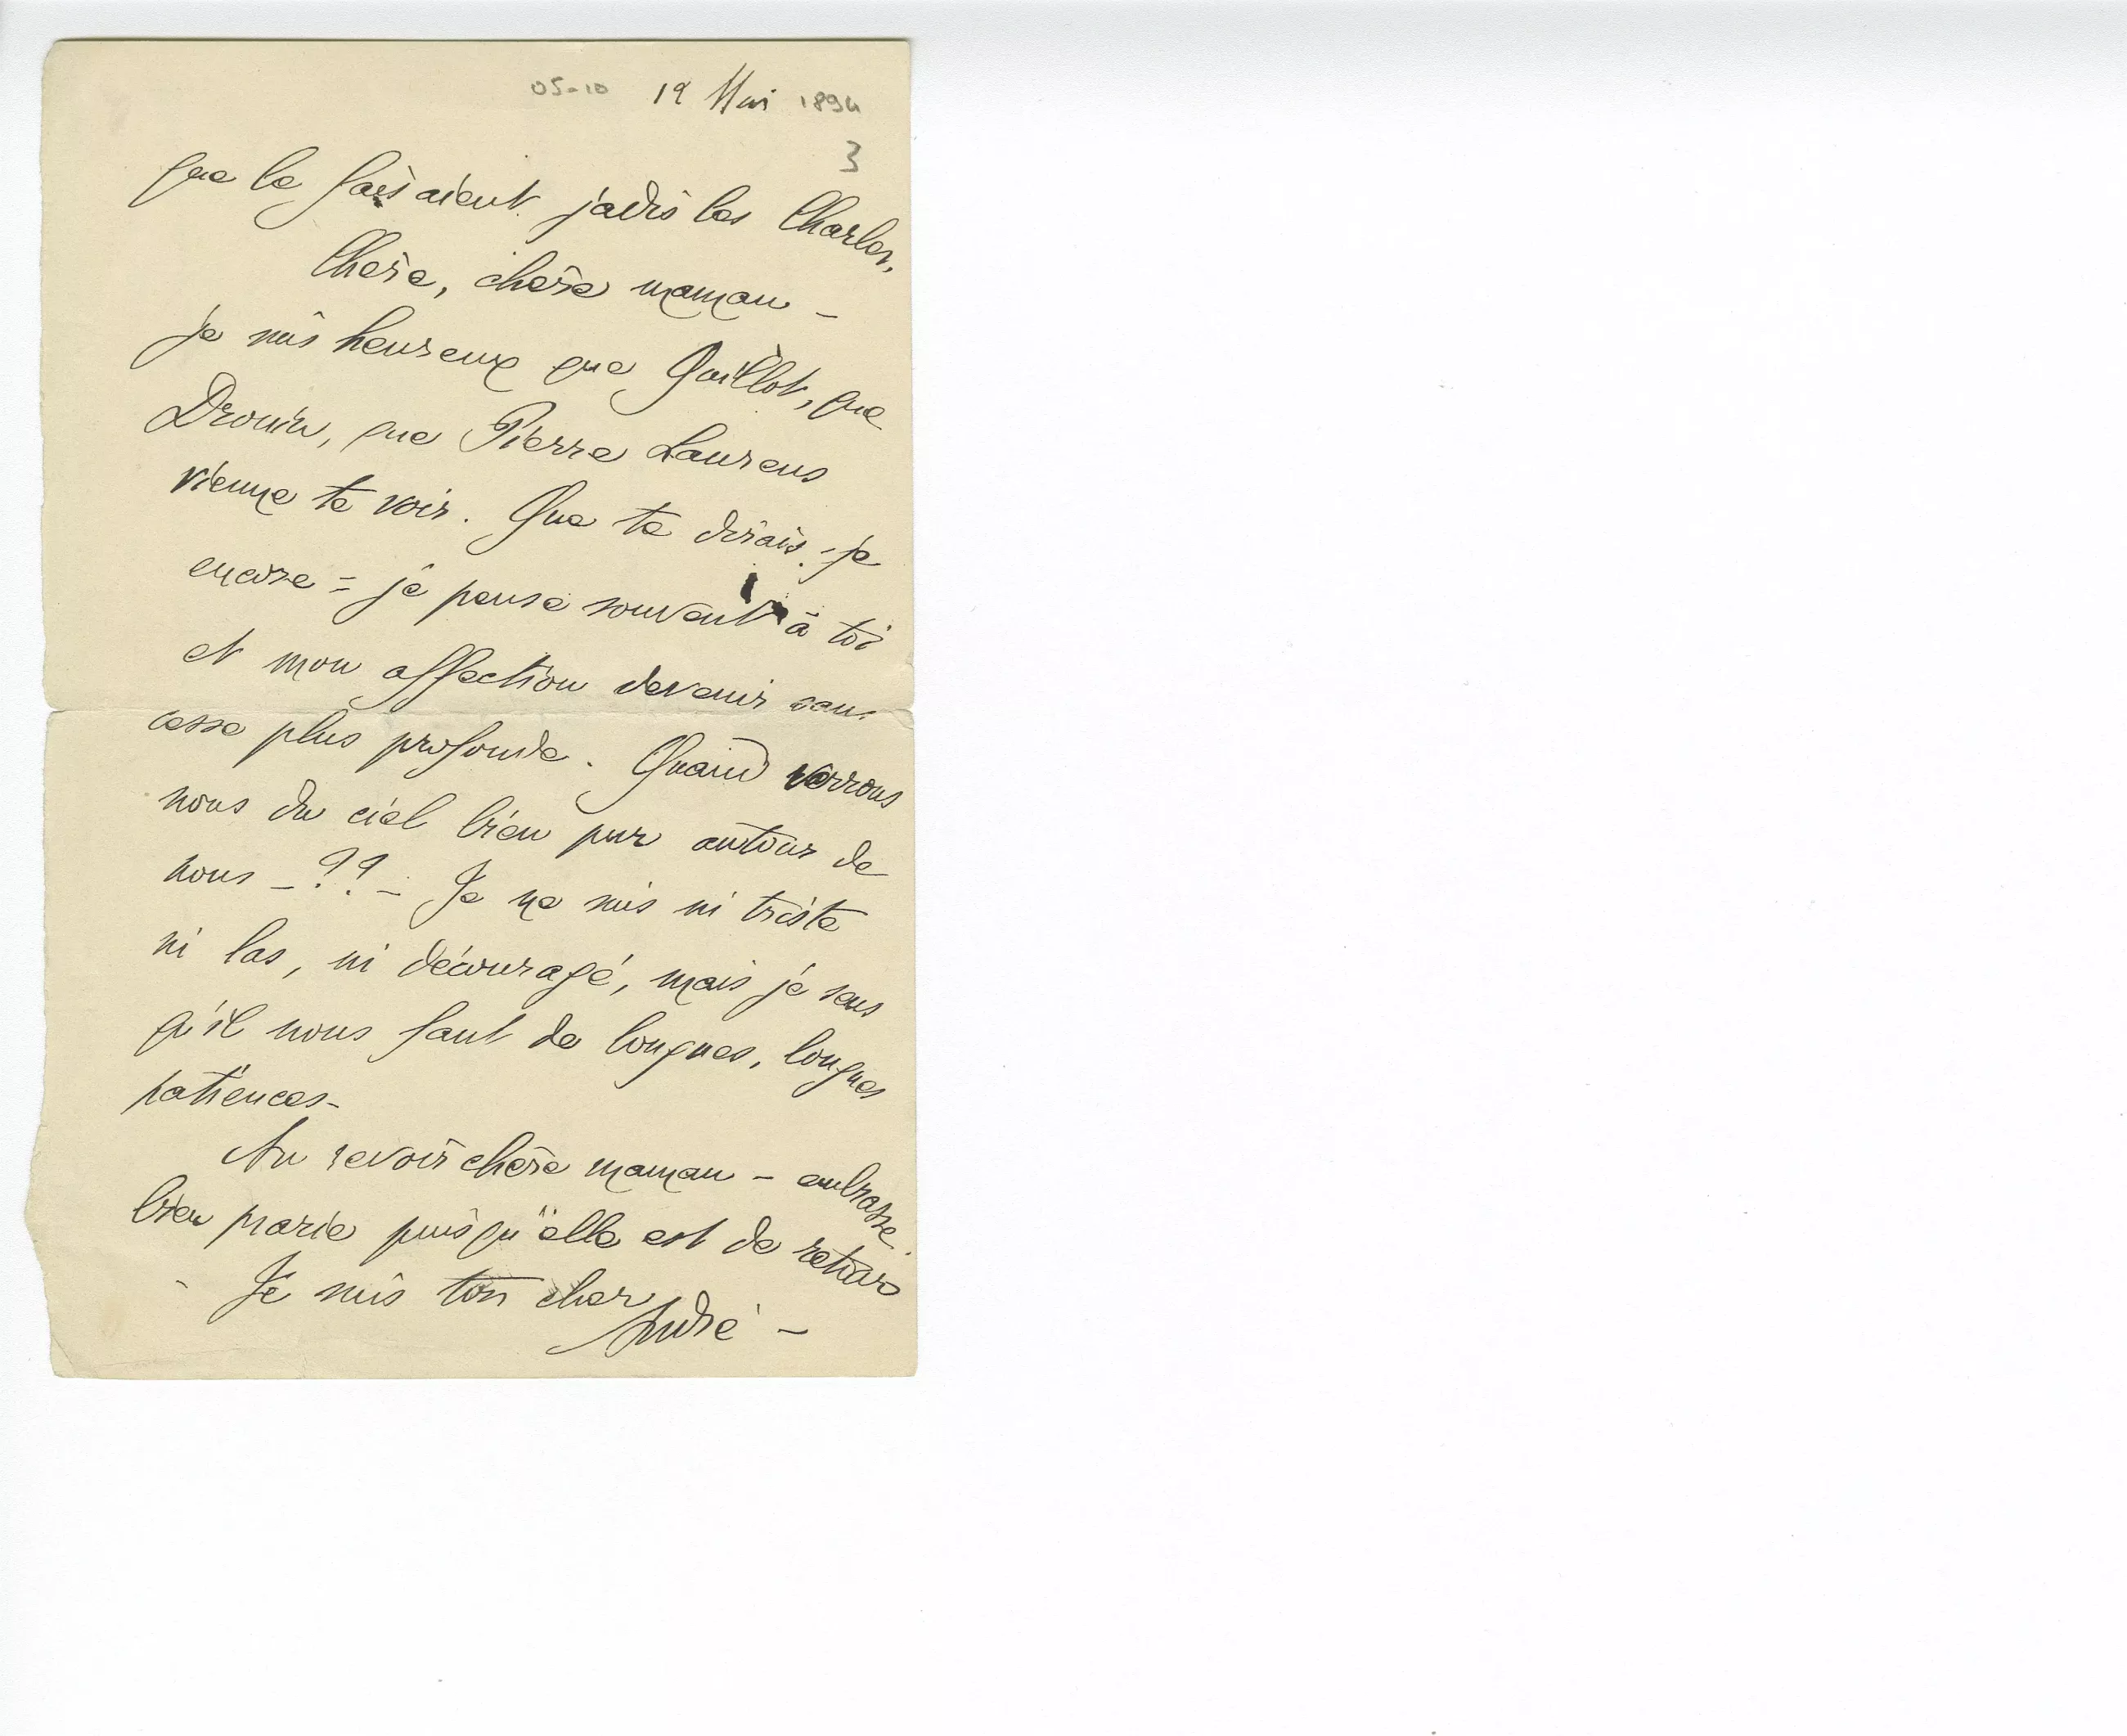 05-10 19 Mai 1894
3
que le faisaient jadis les Charles.
Chère, chère maman –
je suis heureux que Quillot, que
Drouin, que Pierre Laurens
vienne te voir. Que te dirais-je
encore – je pense souvent à toi
et mon affection devenir sans
cesse plus profonde. Quand verrons
nous du ciel bien pur autour de
nous – ?? – Je ne suis ni triste
ni las, ni découragé, mais je sens
qu'il nous faut de longues, longues
patiences –
Au revoir chère maman – embrasse
bien Marie puisqu'elle est de retour
– Je suis ton cher
André –